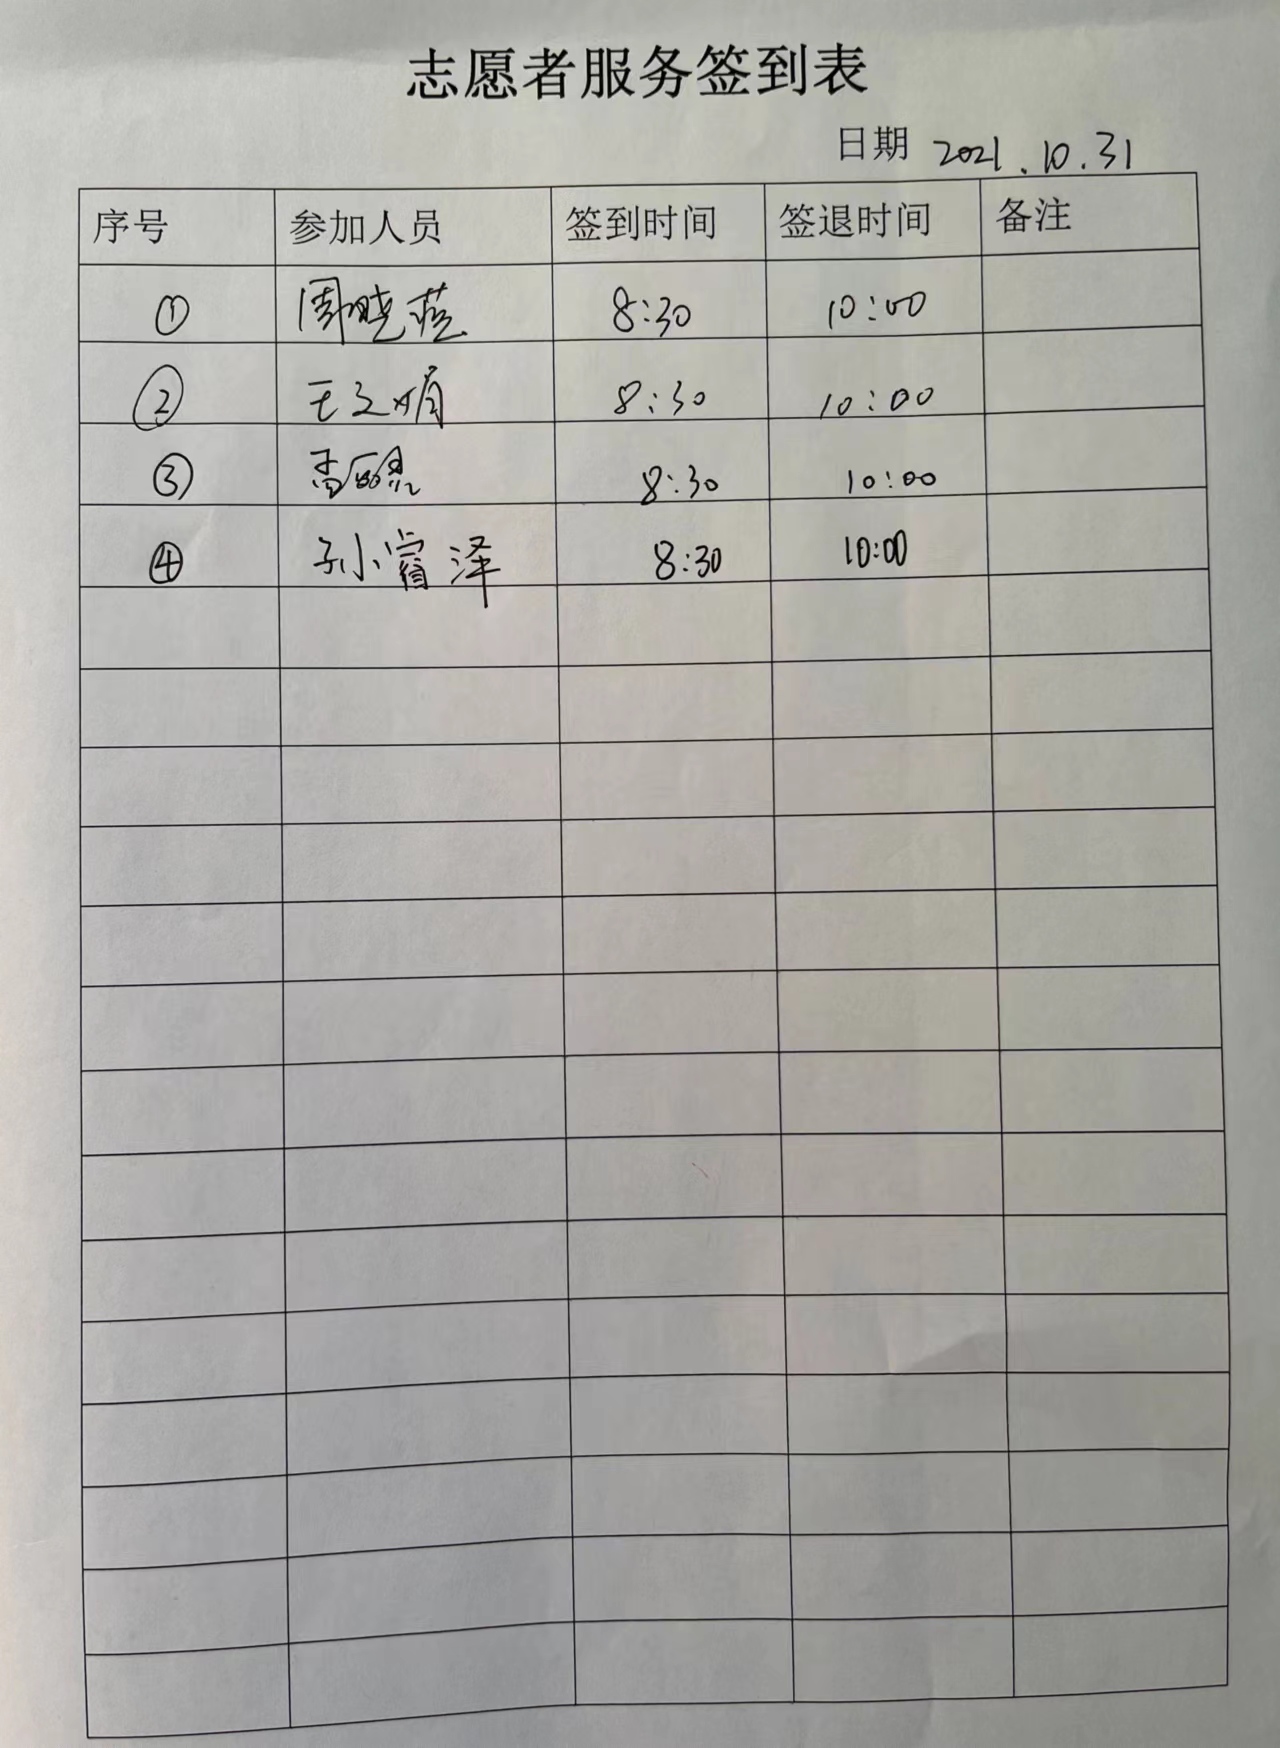 志愿者服务签到表
日期 2021.10.31
序号 参加人员 签到时间 签退时间 备注
① 周晓燕 8:30 10:00
② 王文娟 8:30 10:00
③ 8:30 10:00
④ 孙富泽 8:30 10:00